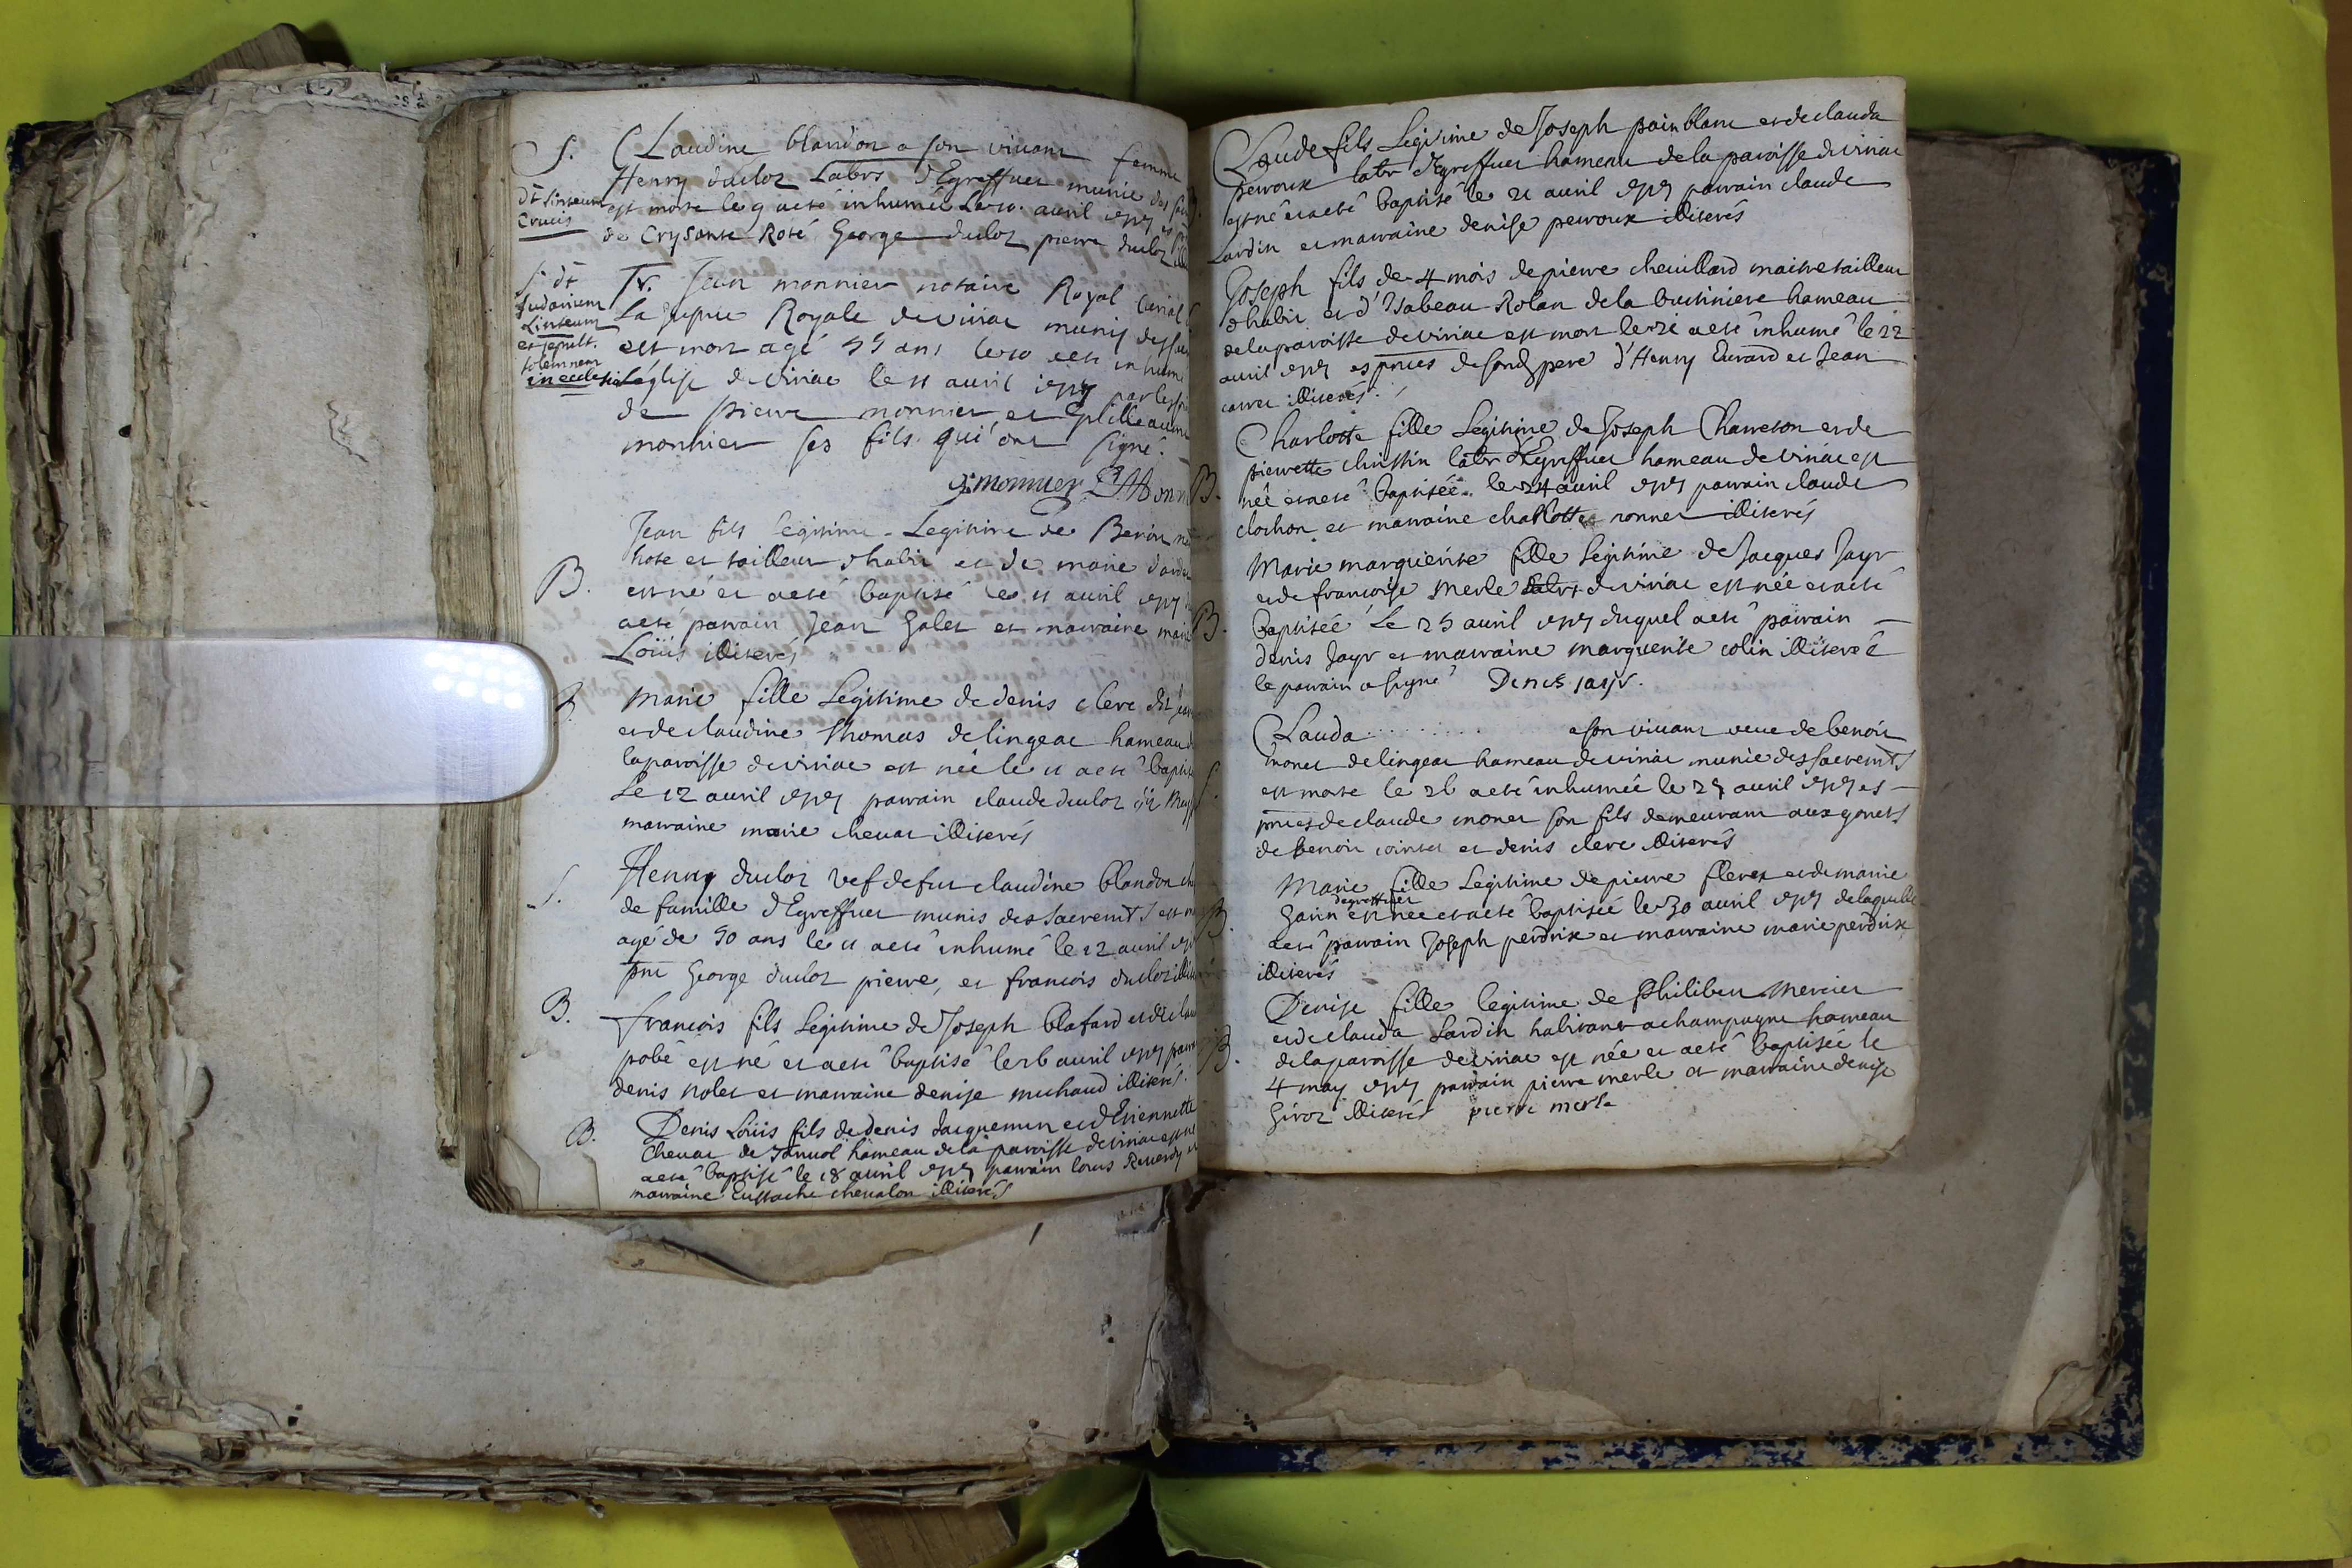 S. Claudine blandon a son vivant femme
Henry ducloz Labrs d'Egreffuer munie des
est morte le 9 aesté inhumée Le 10. avril 1717
dt linteum
Crucis
de Crysante Roté George ducloz pierre ducloz
S. dt
sudarium
Linteum
et sepult.
solemnem
in ecclesia
Jean monnier notaire Royal
La Royale de viriac munis des
est mort agé 55 ans le 10 inhumé
l'église de viriac le 11 avril 1717 par
de pierre monnier et Guilleaume
monnier ses fils qui ont signé.
monnier
Jean fils legitime Legitime de Benoit
hote et tailleur d'habit et de marie
B. est né et aesté baptisé le 11 avril 1717
aesté parrain Jean Galet et marraine marie
Loüis illiterés
B. Marie fille Legitime de denis clerc dit
et de claudine Thomas de lingeat hameau
la paroisse de viriac est née le 11 aesté baptisée
Le 12 avril 1717 parrain claude ducloz
marraine marie chevat illiterés
S. Henry ducloz vef de fut claudine blandon
de famille d'Egreffuer munis des sacremts est
agé de 50 ans le 11 aesté inhumé le 12 avril
pnt George ducloz pierre, et francois ducloz
B. francois fils Legitime de Joseph blafard et de
pobé est né et aesté baptisé le 16 avril 1717
denis nolet et marraine denise michaud illiterés.
B. Denis Loüis fils de denis Jacquemin et d'Etiennette
Chevat de hameau de la paroisse de viriac est né
aesté baptisé le 18 avril 1717 parrain louis Reverdy
marraine Eustache chevalon illiterés
Claude fils Legitime de Joseph painblanc et de clauda
perroux labr d'Egreffuer hameau de la paroisse de viriac
est né et aesté baptisé le 21 avril 1717 parrain claude
Lardin et marraine denise perroux illiterés
Joseph fils de 4 mois de pierre chevillard maitre tailleur
d'habit et d'Isabeau Rolan de la hameau
de la paroisse de viriac est mort le 21 aesté inhumé le 22
avril 1717 es pnces de sondt pere d'Henry Evrard et Jean
carret illiterés.
Charlotte fille Legitime de Joseph Charreton et de
pierrette christin labr d'Egreffuer hameau de viriac est
B. née et aesté baptisée le 24 avril 1717 parrain claude
clochon et marraine charlotte ronner illiterés
Marie marguerite fille legitime de Jacques Jayr
et de francoise Merle de viriac est née et aesté
B. Baptisée Le 25 avril 1717 duquel aesté parrain
denis Jayr et marraine marguerite colin illiteré
le parrain a signé Denis jayr.
Clauda . . . . . . . . . a son vivant veue de benoit
monet de lingeat hameau de viriac munie des sacremts
S. est morte le 26 aesté inhumée le 27 avril 1717 es
pnces de claude monet son fils demeurant aux gonets
de benoit et denis clerc illiterés
Marie fille Legitime de pierre fleret et de marie
degreffuer
B. Garin est née et aesté baptisée le 30 avril 1717 de laquelle
aesté parrain Joseph perdrix et marraine marie perdrix
illiterés
Denise fille legitime de Philibert Mercier
et de clauda Lardin habitant a champagne hameau
B. de la paroisse de viriac est née et aesté baptisée le
4 may 1717 parrain pierre merle et marraine denise
Giroz illiterés pierre merle